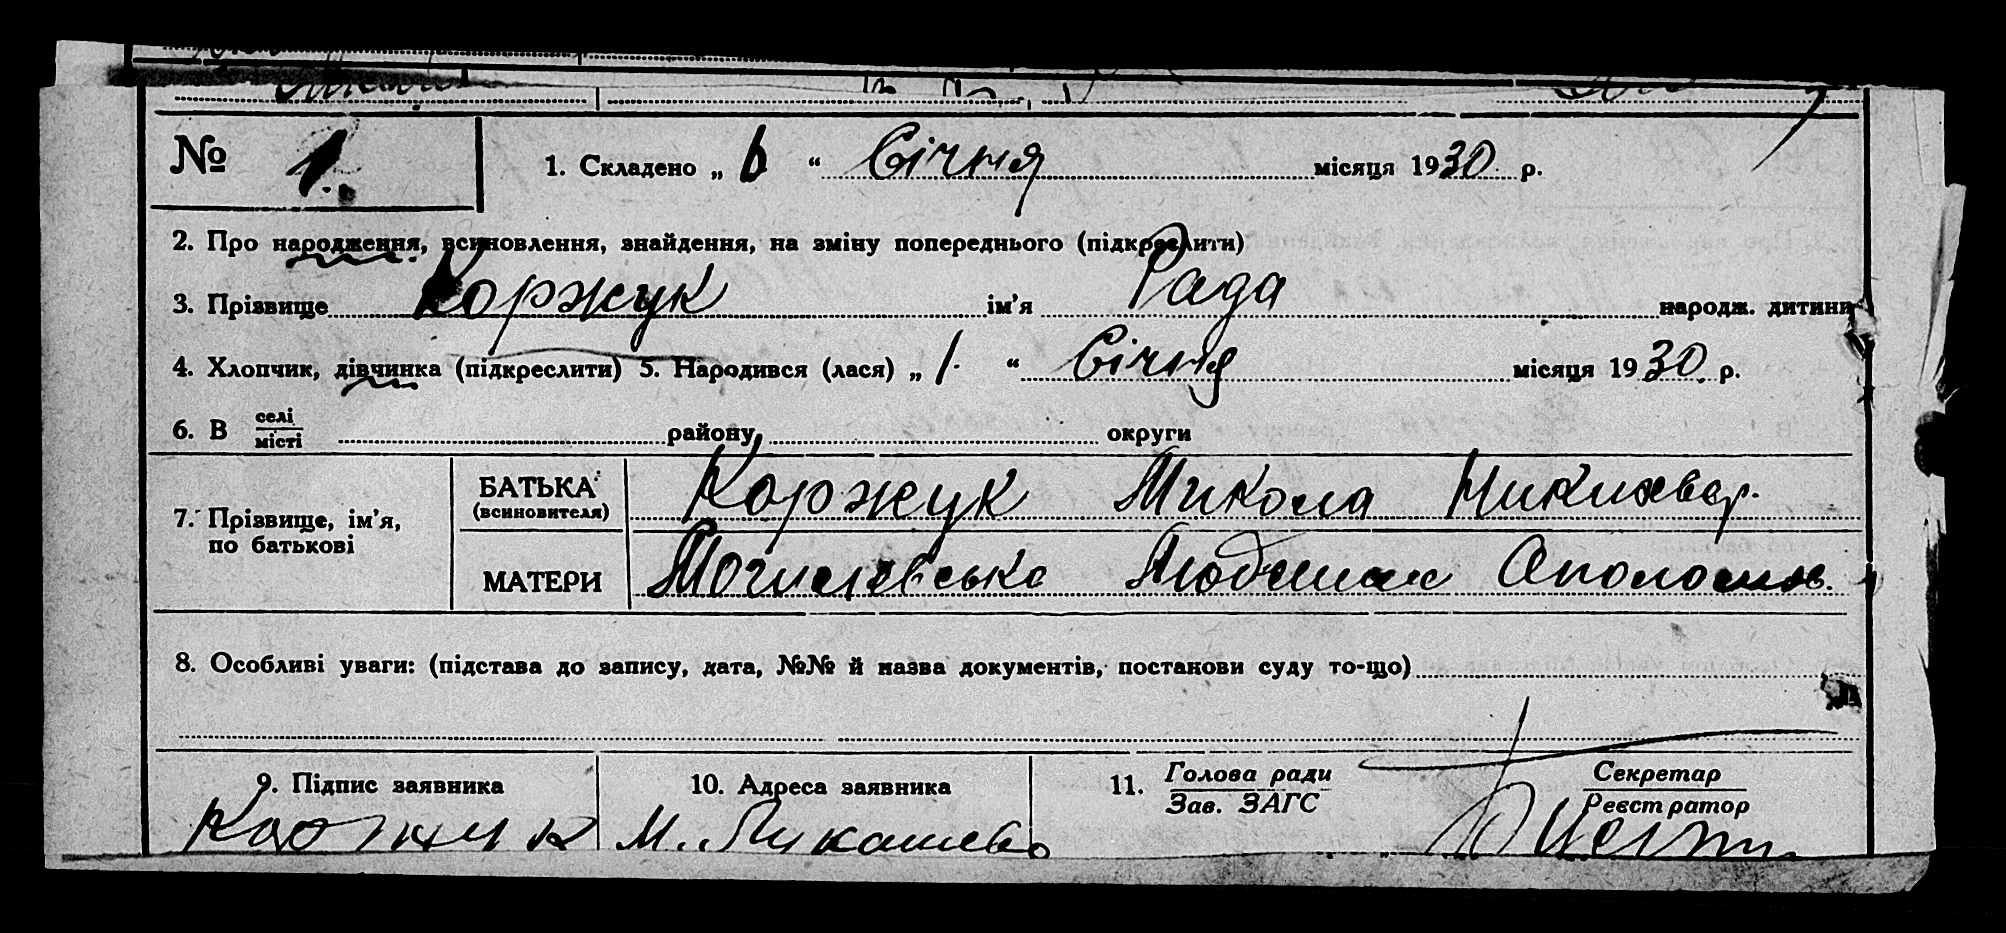 № 1. 1. Складено „ 6 “ Січня місяця 1930 р.
2. Про народження, всиновлення, знайдення, на зміну попереднього (підкреслити)
3. Прізвище Коржук ім’я Рада народж. дитини
4. Хлопчик, дівчинка (підкреслити) 5. Народився (лася) „ 1. “ Січня місяця 1930 р.
6. В селі місті району, округи
7. Прізвище, ім’я, по батькові
БАТЬКА (всиновителя) Коржук Микола Никихвор.
МАТЕРИ Могилевська Людмила Аполон.
8. Особливі уваги: (підстава до запису, дата, №№ й назва документів, постанови суду то-що)
9. Підпис заявника 10. Адреса заявника 11. Голова ради Секретар
Зав. ЗАГС Реєстратор
Коржук М. Лукашево